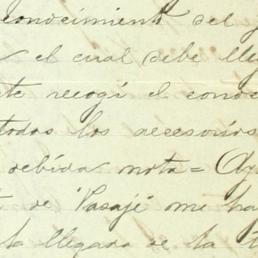 conocimiento del
el cual debe lle
te recogí el conoc
todos los accesorios
debida nota =
de "Pasaje" me ha
la llegada de la